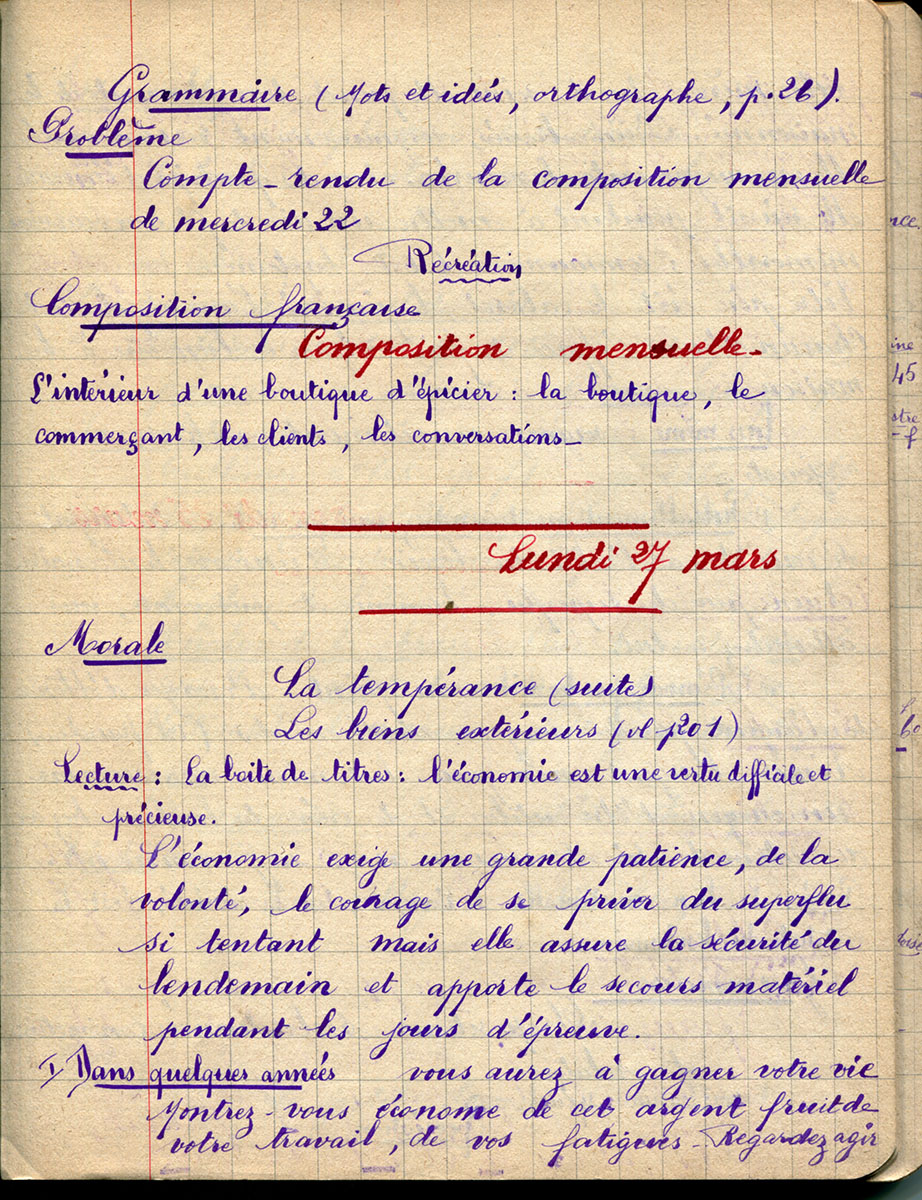 Grammaire (Mots et idées, orthographe, p. 26).
Problème
Compte-rendu de la composition mensuelle
de mercredi 22
Récréation
Composition française
Composition mensuelle-
L'intérieur d'une boutique d'épicier : la boutique, le
commerçant, les clients, les conversations-
Lundi 27 mars
Morale
La tempérance (suite)
Les biens extérieurs (vl p201)
Lecture : La boite de titres : l'économie est une vertu difficile et
précieuse.
L'économie exige une grande patience, de la
volonté, le courage de se priver du superflu
si tentant mais elle assure la sécurité du
lendemain et apporte le secours matériel
pendant les jours d'épreuve.
I) Dans quelques années vous aurez à gagner votre vie
Montrez-vous économe de cet argent fruit de
votre travail, de vos fatigues- Regardez agir
nce
ine
45
stre
-f
60